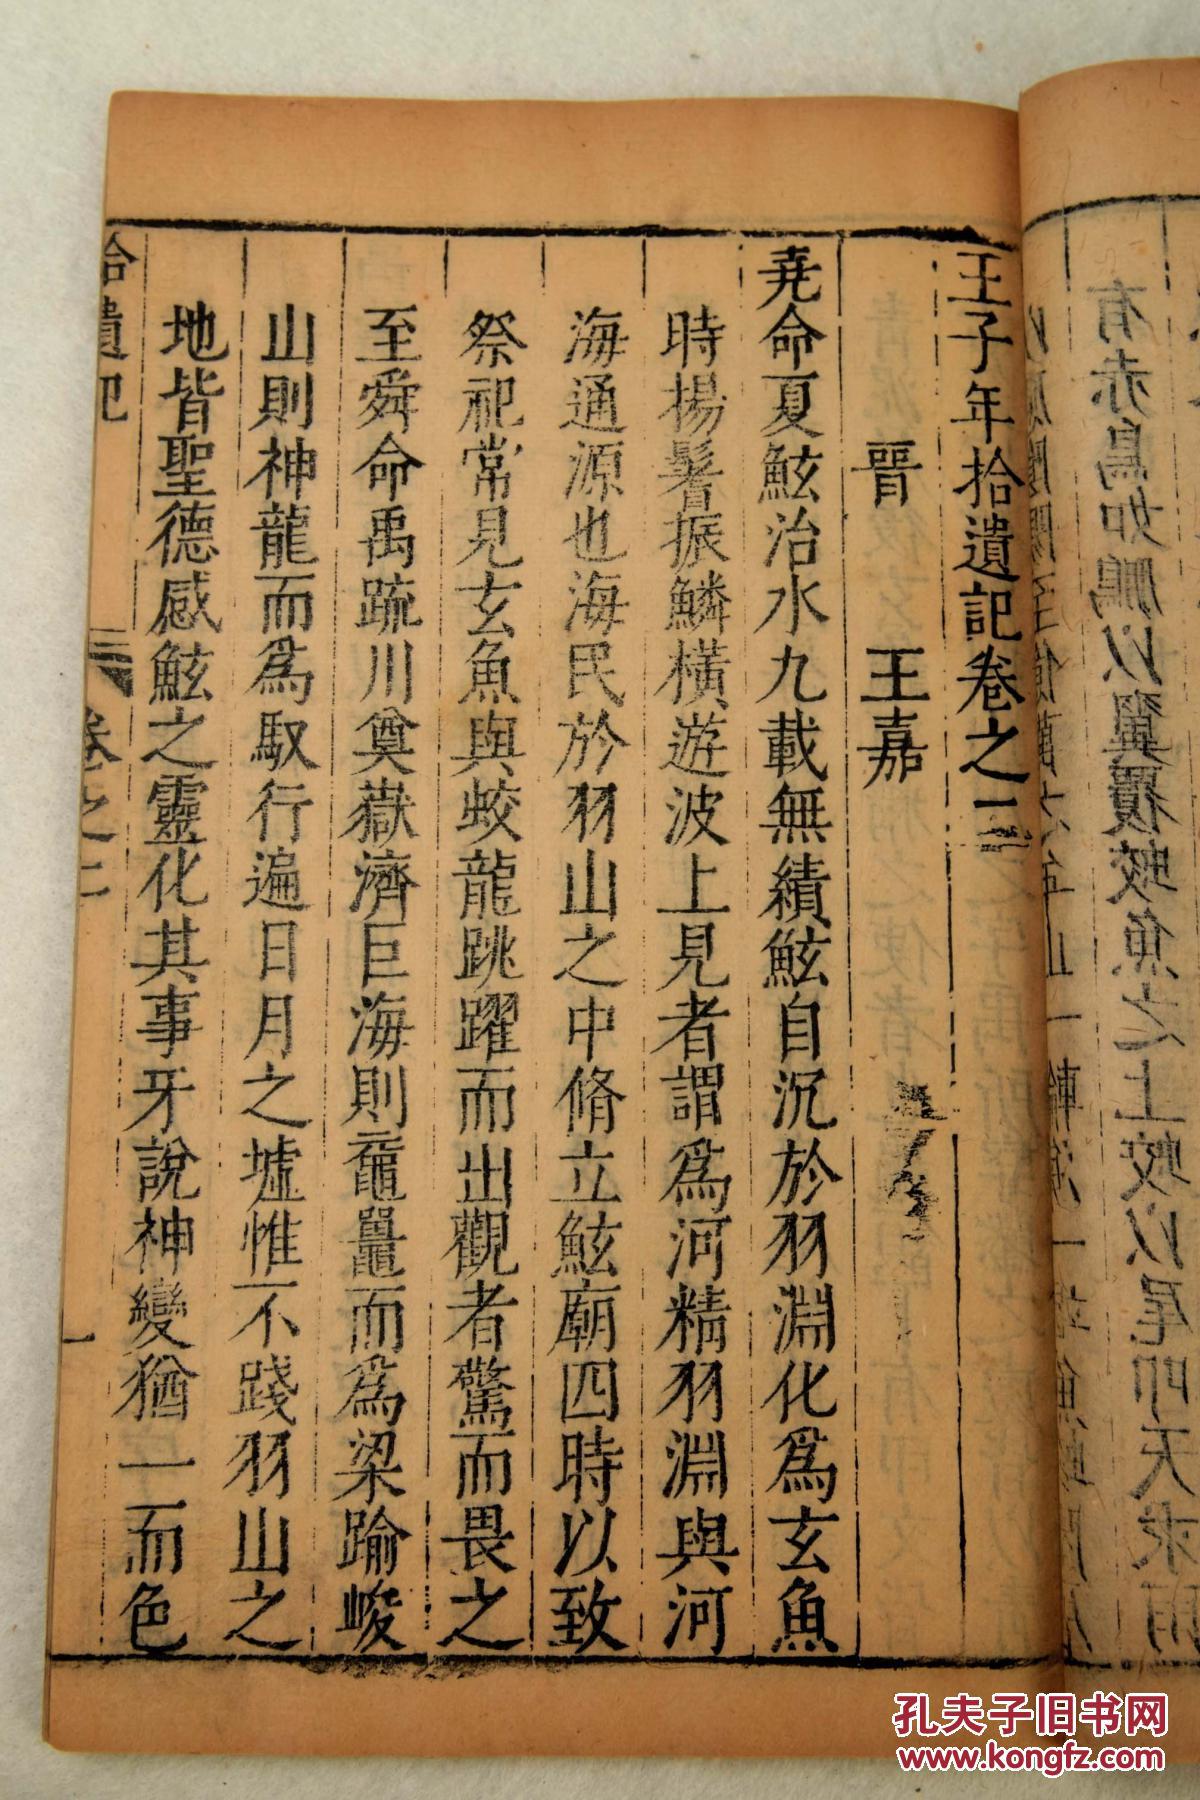 王子年拾遺記卷之二
晉 王嘉
尭命夏鮌治水九載無績鮌自沉於羽淵化爲玄魚
時揚鬐振鱗橫遊波上見者謂爲河精羽淵與河
海通源也海民於羽山之中脩立鮌廟四時以致
祭祀常見玄魚與蛟龍跳躍而出觀者驚而畏之
至舜命禹疏川奠嶽濟巨海則黿鼉而爲梁踰峻
山則神龍而爲馭行遍日月之墟惟不踐羽山之
地皆聖德感鮌之靈化其事牙說神變猶一而色
拾遺記 卷之二 一
孔夫子旧书网
www.kongfz.com